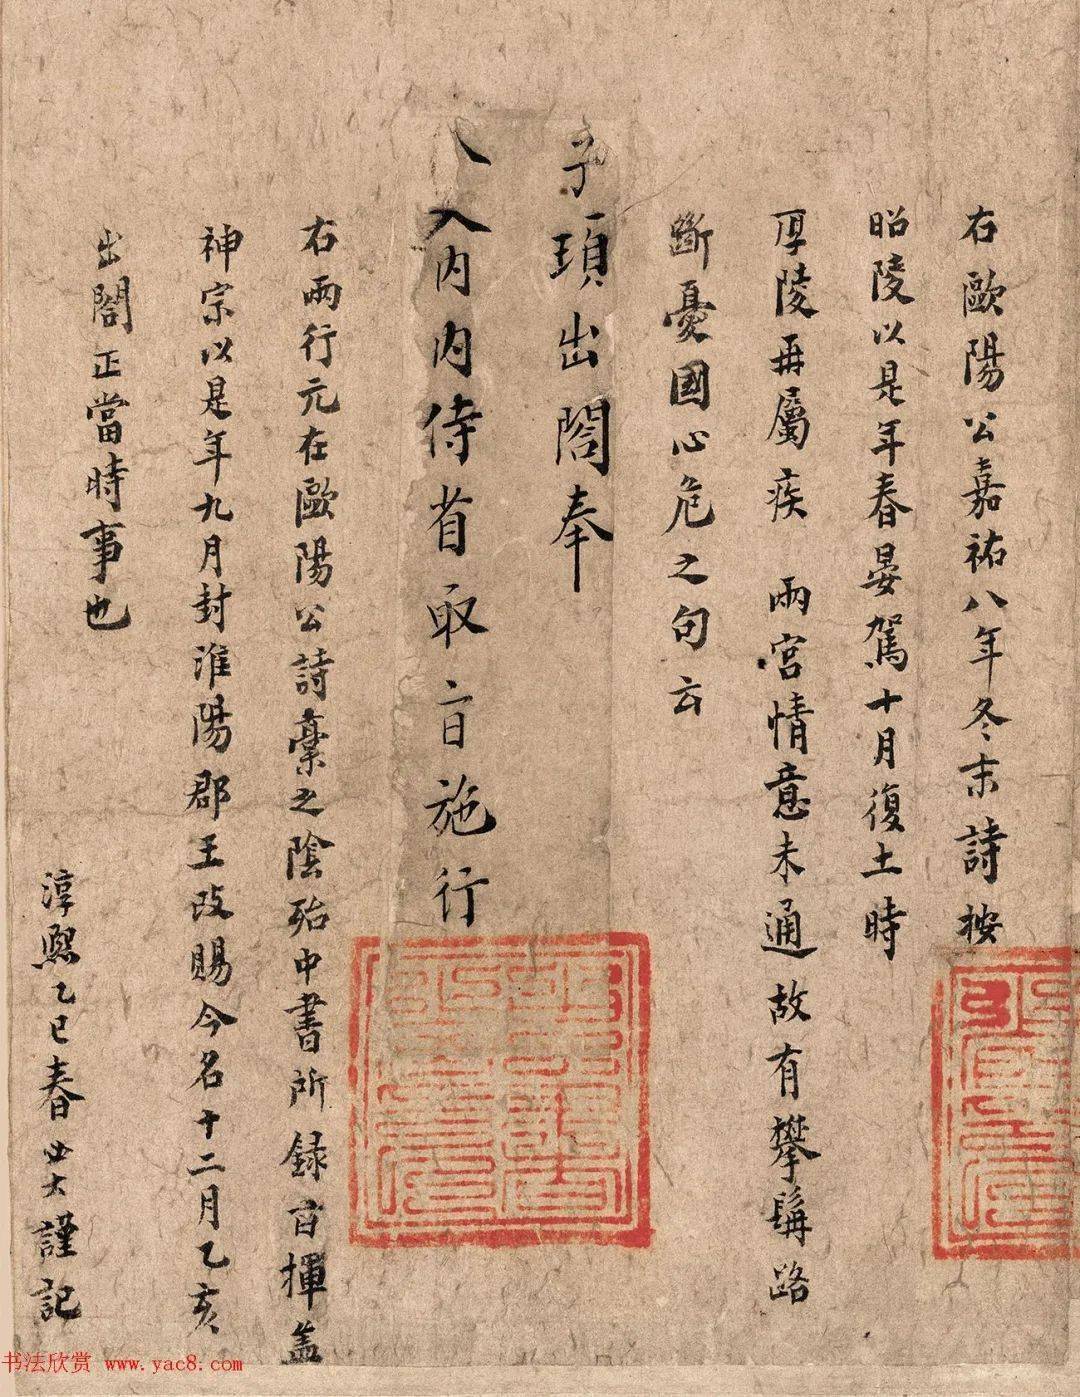 右歐陽公嘉祐八年冬末詩按
昭陵以是年春晏駕十月復土時
厚陵再屬疾 兩宮情意未通故有攀髯路
斷憂國心危之句云
子頊出閤奉
入內內侍省取旨施行
右兩行元在歐陽公詩稾之陰殆中書所錄旨揮蓋
神宗以是年九月封淮陽郡王改賜今名十二月乙亥
出閤正當時事也
淳熙乙巳春必大謹記
书法欣赏 www.yac8.com